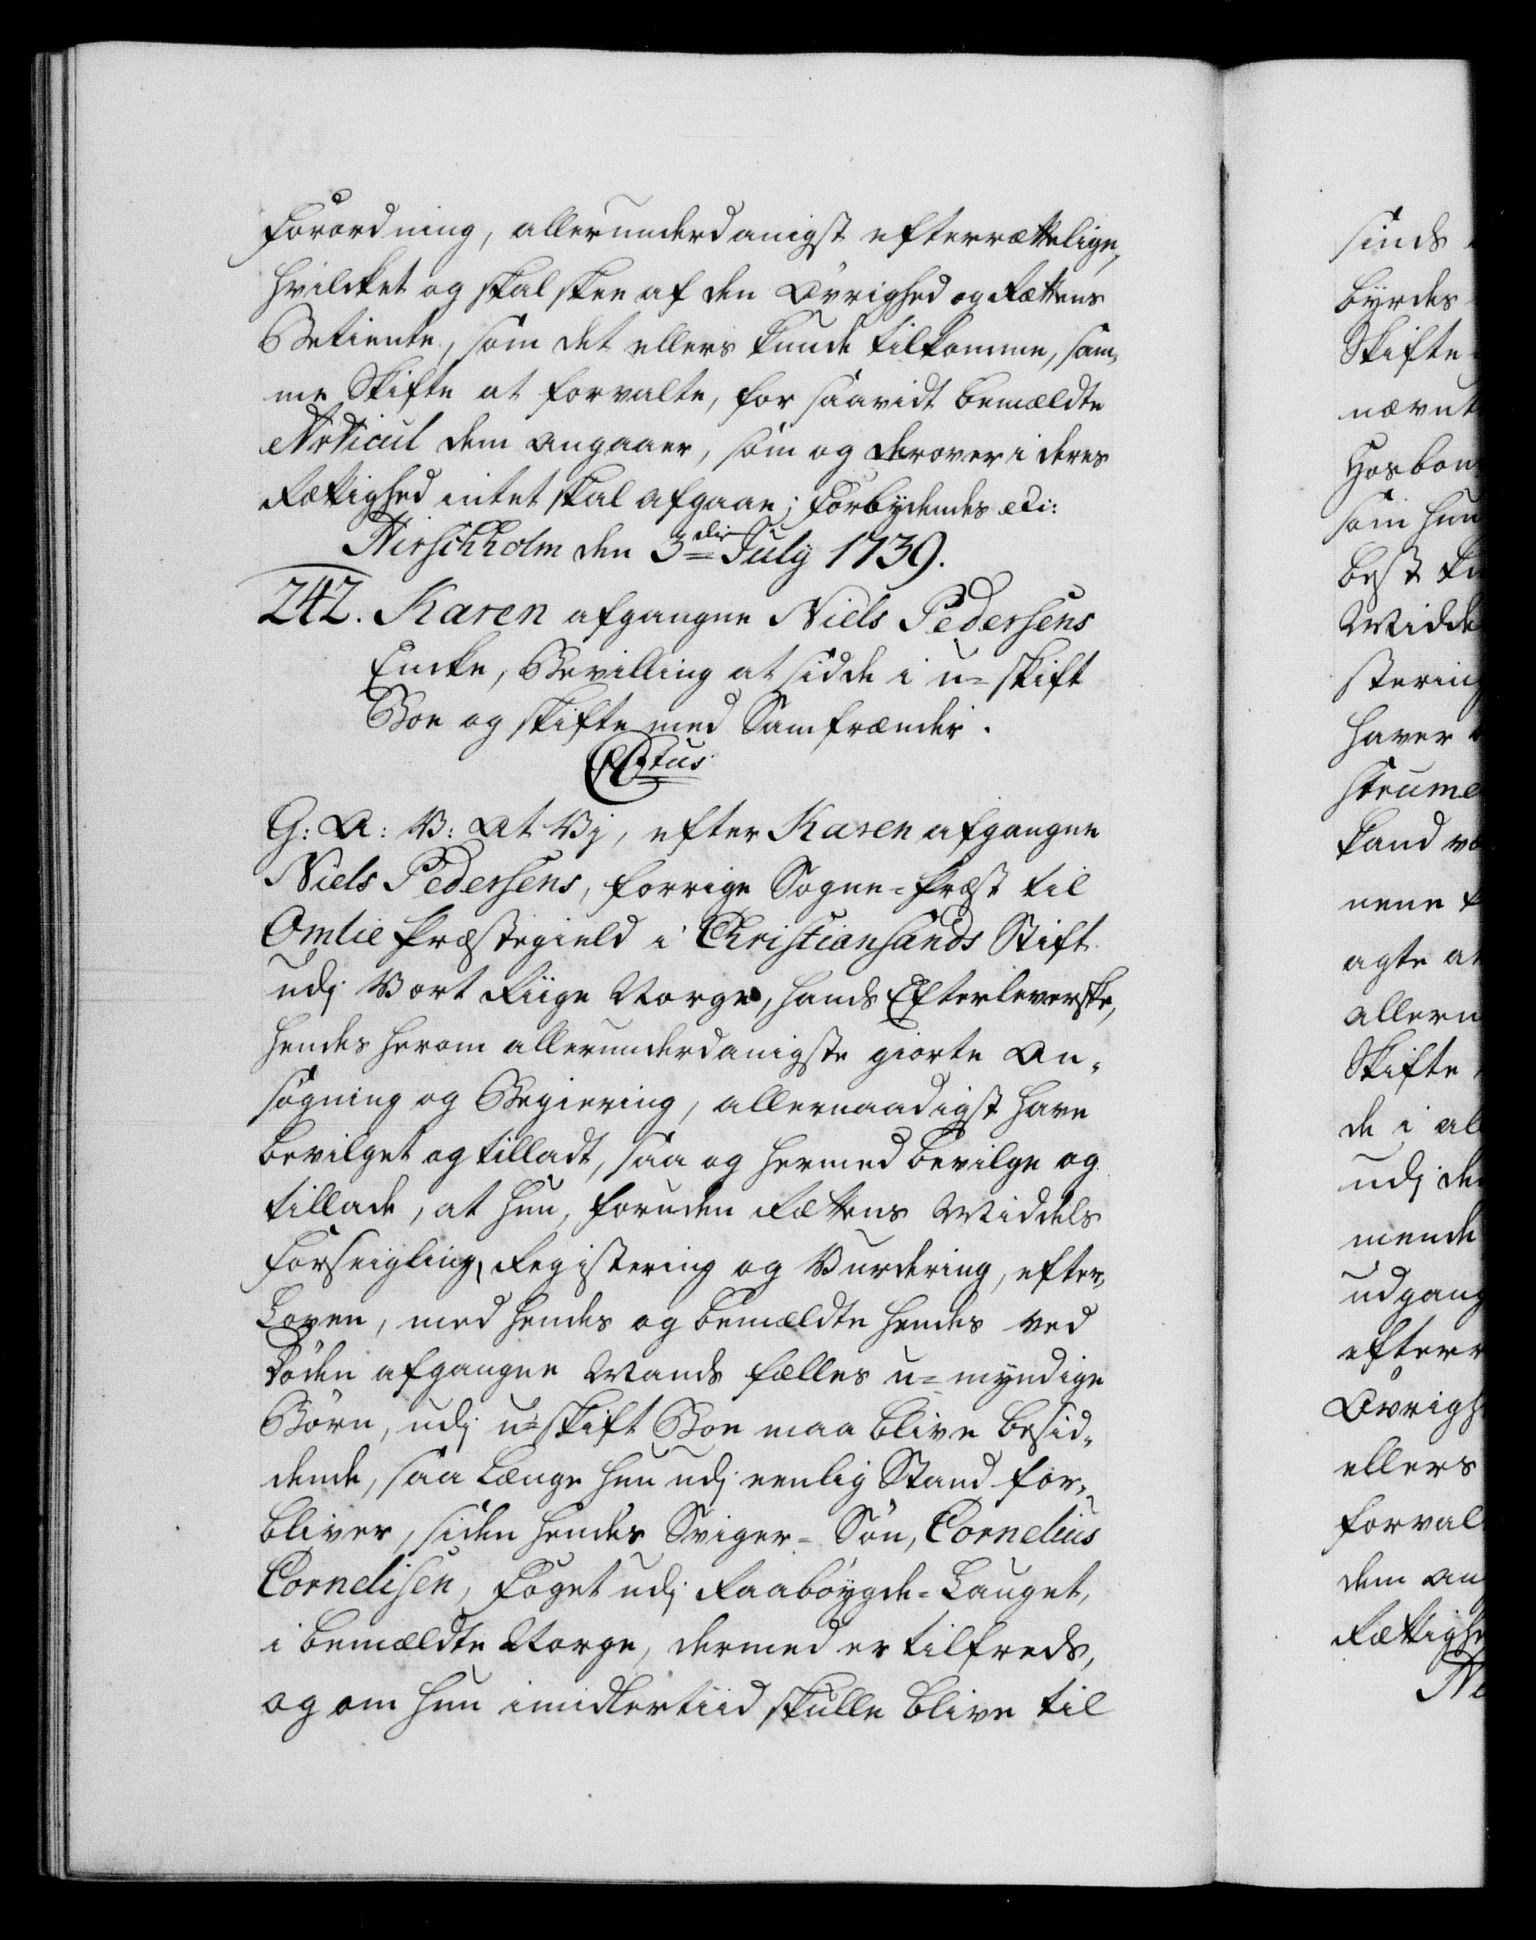 Forordning, allerunderdanigst efterrettelige,
hvilcket og skal skee af den Øvrighed og Rettens
Betiente, som det ellers kunde tilkomme, sam-
me Skifte at forvalte, for saavidt bemældte
Articul dem angaaer, som og derover i deres
Rettighed intet skal afgaae; Forbydendes etc:
Hirschholm den 3die July 1739.
242. Karen afgangne Niels Pedersens
Encke, Bevilling at sidde i u-skift
Boe og skifte med Samfrænder.
C6tus
G: A: V: At Vj, efter Karen afgangne
Niels Pedersens, forrige Sogne-Præst til
Omlie Præstegield i Christiansands Stift
udj Vort Riige Norge, hands Efterleverske,
hendes herom allerunderdanigste giorte An-
søgning og Begiering, allernaadigst have
bevilget og tilladt, saa og hermed bevilge og
tillade, at hun, foruden Rettens Middels
Forseigling, Registering og Vurdering, efter
Loven, med hendes og bemældte hendes ved
Døden afgangne Mands fælles u-myndige
Børn, udj u-skift Boe maa blive besid-
dende, saa længe hun udj eenlig Stand for-
bliver, siden hendes Sviger-Søn, Cornelius
Cornelisen, Foget udj Raabøygde-Lauget,
i bemældte Norge, dermed er tilfreds,
og om hun imidlertiid skulle blive til
sinds
byrdes
Skifte
nævnt
Hosbon
som hun
best ku
Midde
stering
haver
strume
kand væ
nene
agte at
allern
Skifte
de i al
udj de
mende
udgang
efterr
Øvrigh
ellers
forval
dem an
Rettighe